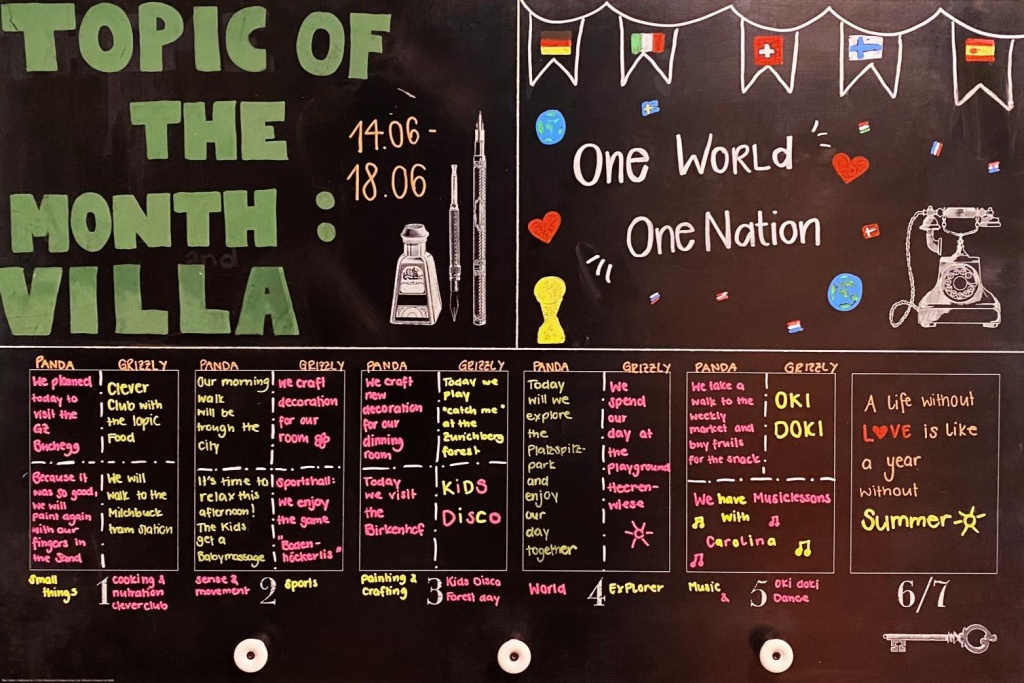 TOPIC OF
THE
MONTH :
VILLA
14.06 -
18.06
One WORLD
One Nation
PANDA
GRIZZLY
We planned
today to
visit the
GZ
Buchegg
Clever
Club with
the topic
Food
Because it
was so good,
we will
paint again
with our
fingers in
the Sand
We will
walk to the
Milchbuck
tram station
Small
things
1
cooking &
nutration
cleverclub
PANDA
GRIZZLY
Our morning
walk
will be
trough the
City
we craft
decoration
for our
room
It's time to
relax this
afternoon!
The Kids
get a
Babymassage
Sportshall:
we enjoy
the game
"Boden-
höckerlis"
sense &
movement
2
Sports
PANDA
GRIZZLY
We craft
new
decoration
for our
dinning
room
Today we
play
"catch me"
at the
Zürichberg
forest
Today
we visit
the
Birkenhof
KiDS
DiSCO
Painting &
Crafting
3
Kids Disco
Forest day
PANDA
GRIZZLY
Today
will we
explore
the
Platzspitz-
park
and
enjoy
our
day
together
We
spend
our
day at
the
playground
Heeren-
wiese
World
4
ExPlorer
PANDA
GRIZZLY
We take a
walk to the
weekly
market and
buy fruits
for the snack.
OKI
DOKI
We have Musiclessons
with
Carolina
Music
&
5
Oki doki
Dance
A life without
LOVE is like
a year
without
Summer
6/7